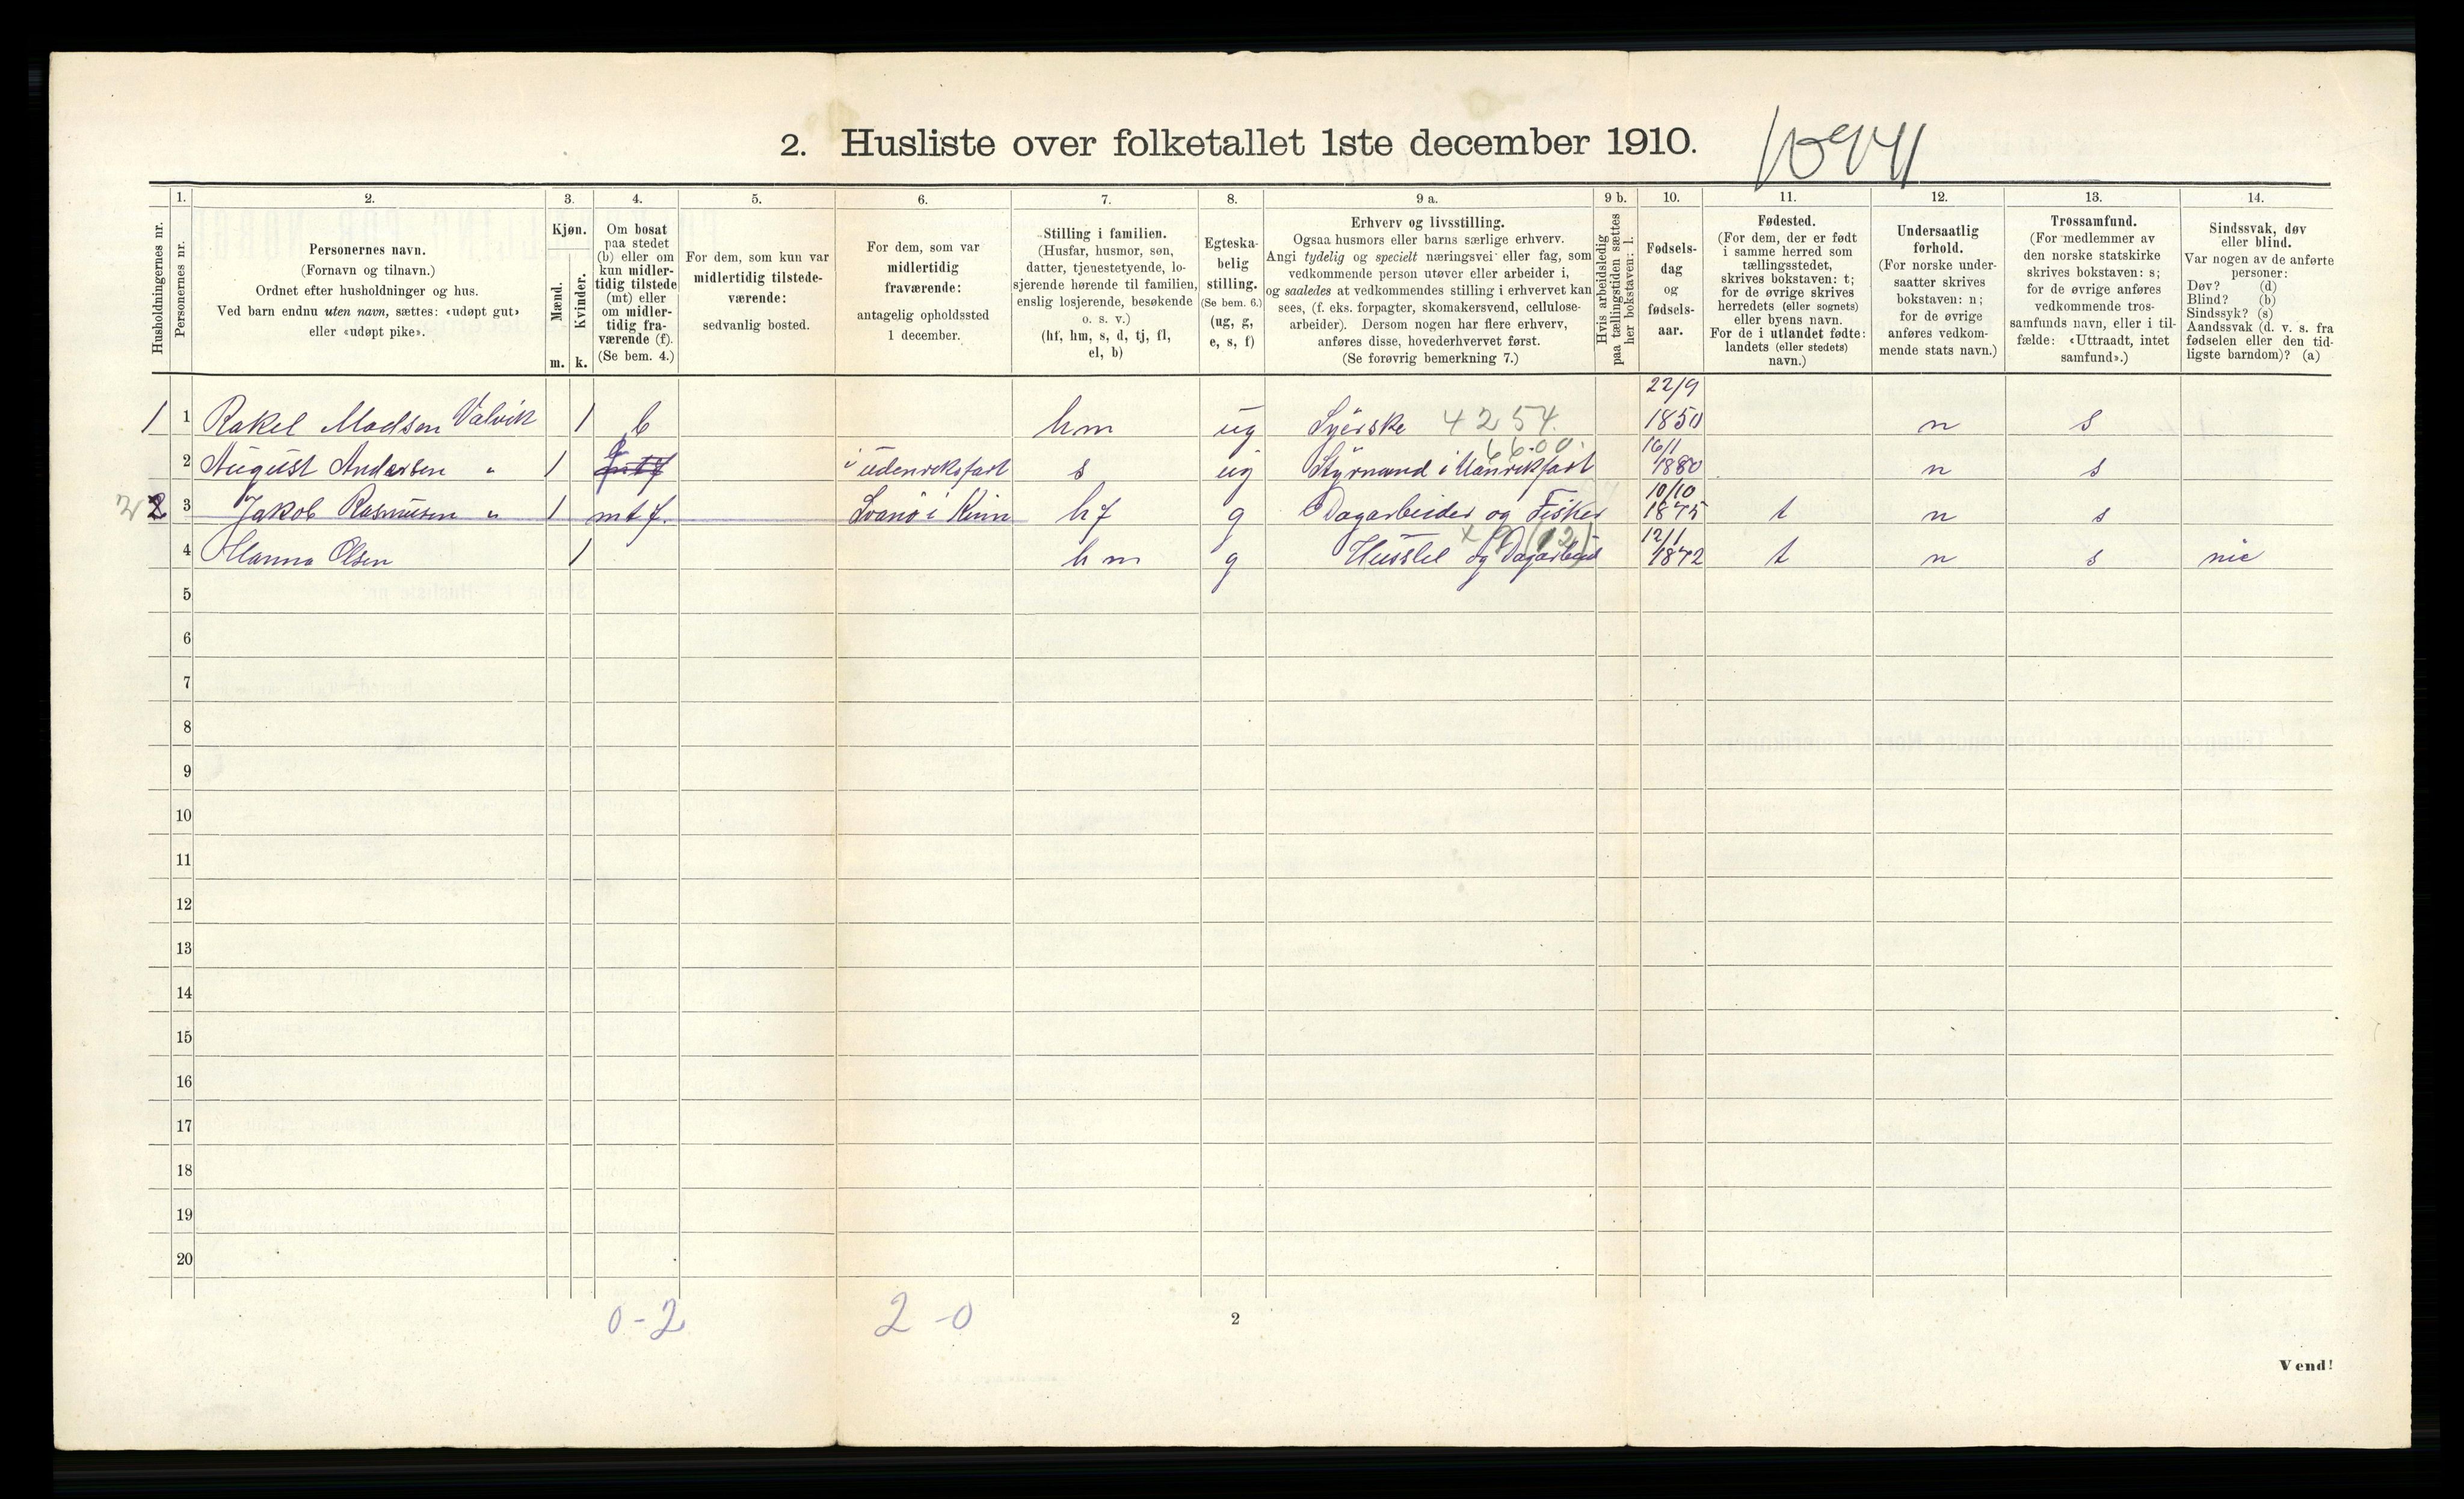 2. Husliste over folketallet 1ste december 1910.
1. 2. 3. 4. 5. 6. 7. 8. 9 a. 9 b. 10. 11. 12. 13. 14.
Husholdningernes nr.
Personernes nr.
Personernes navn.
(Fornavn og tilnavn.)
Ordnet efter husholdninger og hus.
Ved barn endnu uten navn, sættes: «udøpt gut»
eller «udøpt pike».
Kjøn.
Mænd.
Kvinder.
m. k.
Om bosat
paa stedet
(b) eller om
kun midler-
tidig tilstede
(mt) eller
om midler-
tidig fra-
værende (f).
(Se bem. 4.)
For dem, som kun var
midlertidig tilstede-
værende:
sedvanlig bosted.
For dem, som var
midlertidig
fraværende:
antagelig opholdssted
1 december.
Stilling i familien.
(Husfar, husmor, søn,
datter, tjenestetyende, lo-
sjerende hørende til familien,
enslig losjerende, besøkende
o. s. v.)
(hf, hm, s, d, tj, fl,
el, b)
Egteska-
belig
stilling.
(Se bem. 6.)
(ug, g,
e, s, f)
Erhverv og livsstilling.
Ogsaa husmors eller barns særlige erhverv.
Angi tydelig og specielt næringsvei eller fag, som
vedkommende person utøver eller arbeider i,
og saaledes at vedkommendes stilling i erhvervet kan
sees, (f. eks. forpagter, skomakersvend, cellulose-
arbeider). Dersom nogen har flere erhverv,
anføres disse, hovederhvervet først.
(Se forøvrig bemerkning 7.)
Hvis arbeidsledig
paa tællingstiden sættes
her bokstaven: l.
Fødsels-
dag
og
fødsels-
aar.
Fødested.
(For dem, der er født
i samme herred som
tællingsstedet,
skrives bokstaven: t;
for de øvrige skrives
herredets (eller sognets)
eller byens navn.
For de i utlandet fødte:
landets (eller stedets)
navn.)
Undersaatlig
forhold.
(For norske under-
saatter skrives
bokstaven: n;
for de øvrige
anføres vedkom-
mende stats navn.)
Trossamfund.
(For medlemmer av
den norske statskirke
skrives bokstaven: s;
for de øvrige anføres
vedkommende tros-
samfunds navn, eller i til-
fælde: «Uttraadt, intet
samfund».)
Sindssvak, døv
eller blind.
Var nogen av de anførte
personer:
Døv? (d)
Blind? (b)
Sindssyk? (s)
Aandssvak (d. v. s. fra
fødselen eller den tid-
ligste barndom)? (a)
22/9
1 1 Rakel Madsen Valvik 1 b hm ug Syerske 4254. 1850 n s
6600. 16/1
2 August Andersen " 1 b i udenriksfart s ug Styrmand i 1880 n s
10/10
2 3 Jakob Rasmusen " 1 mtf. Svanö i Kinn hf g Dagarbeider og Fisker 1875 t n s
12/1
4 Hanna Olsen 1 hm g Husstel og 1872 t n s nei
5
6
7
8
9
10
11
12
13
14
15
16
17
18
19
20
0-2 2-0
2
Vend!